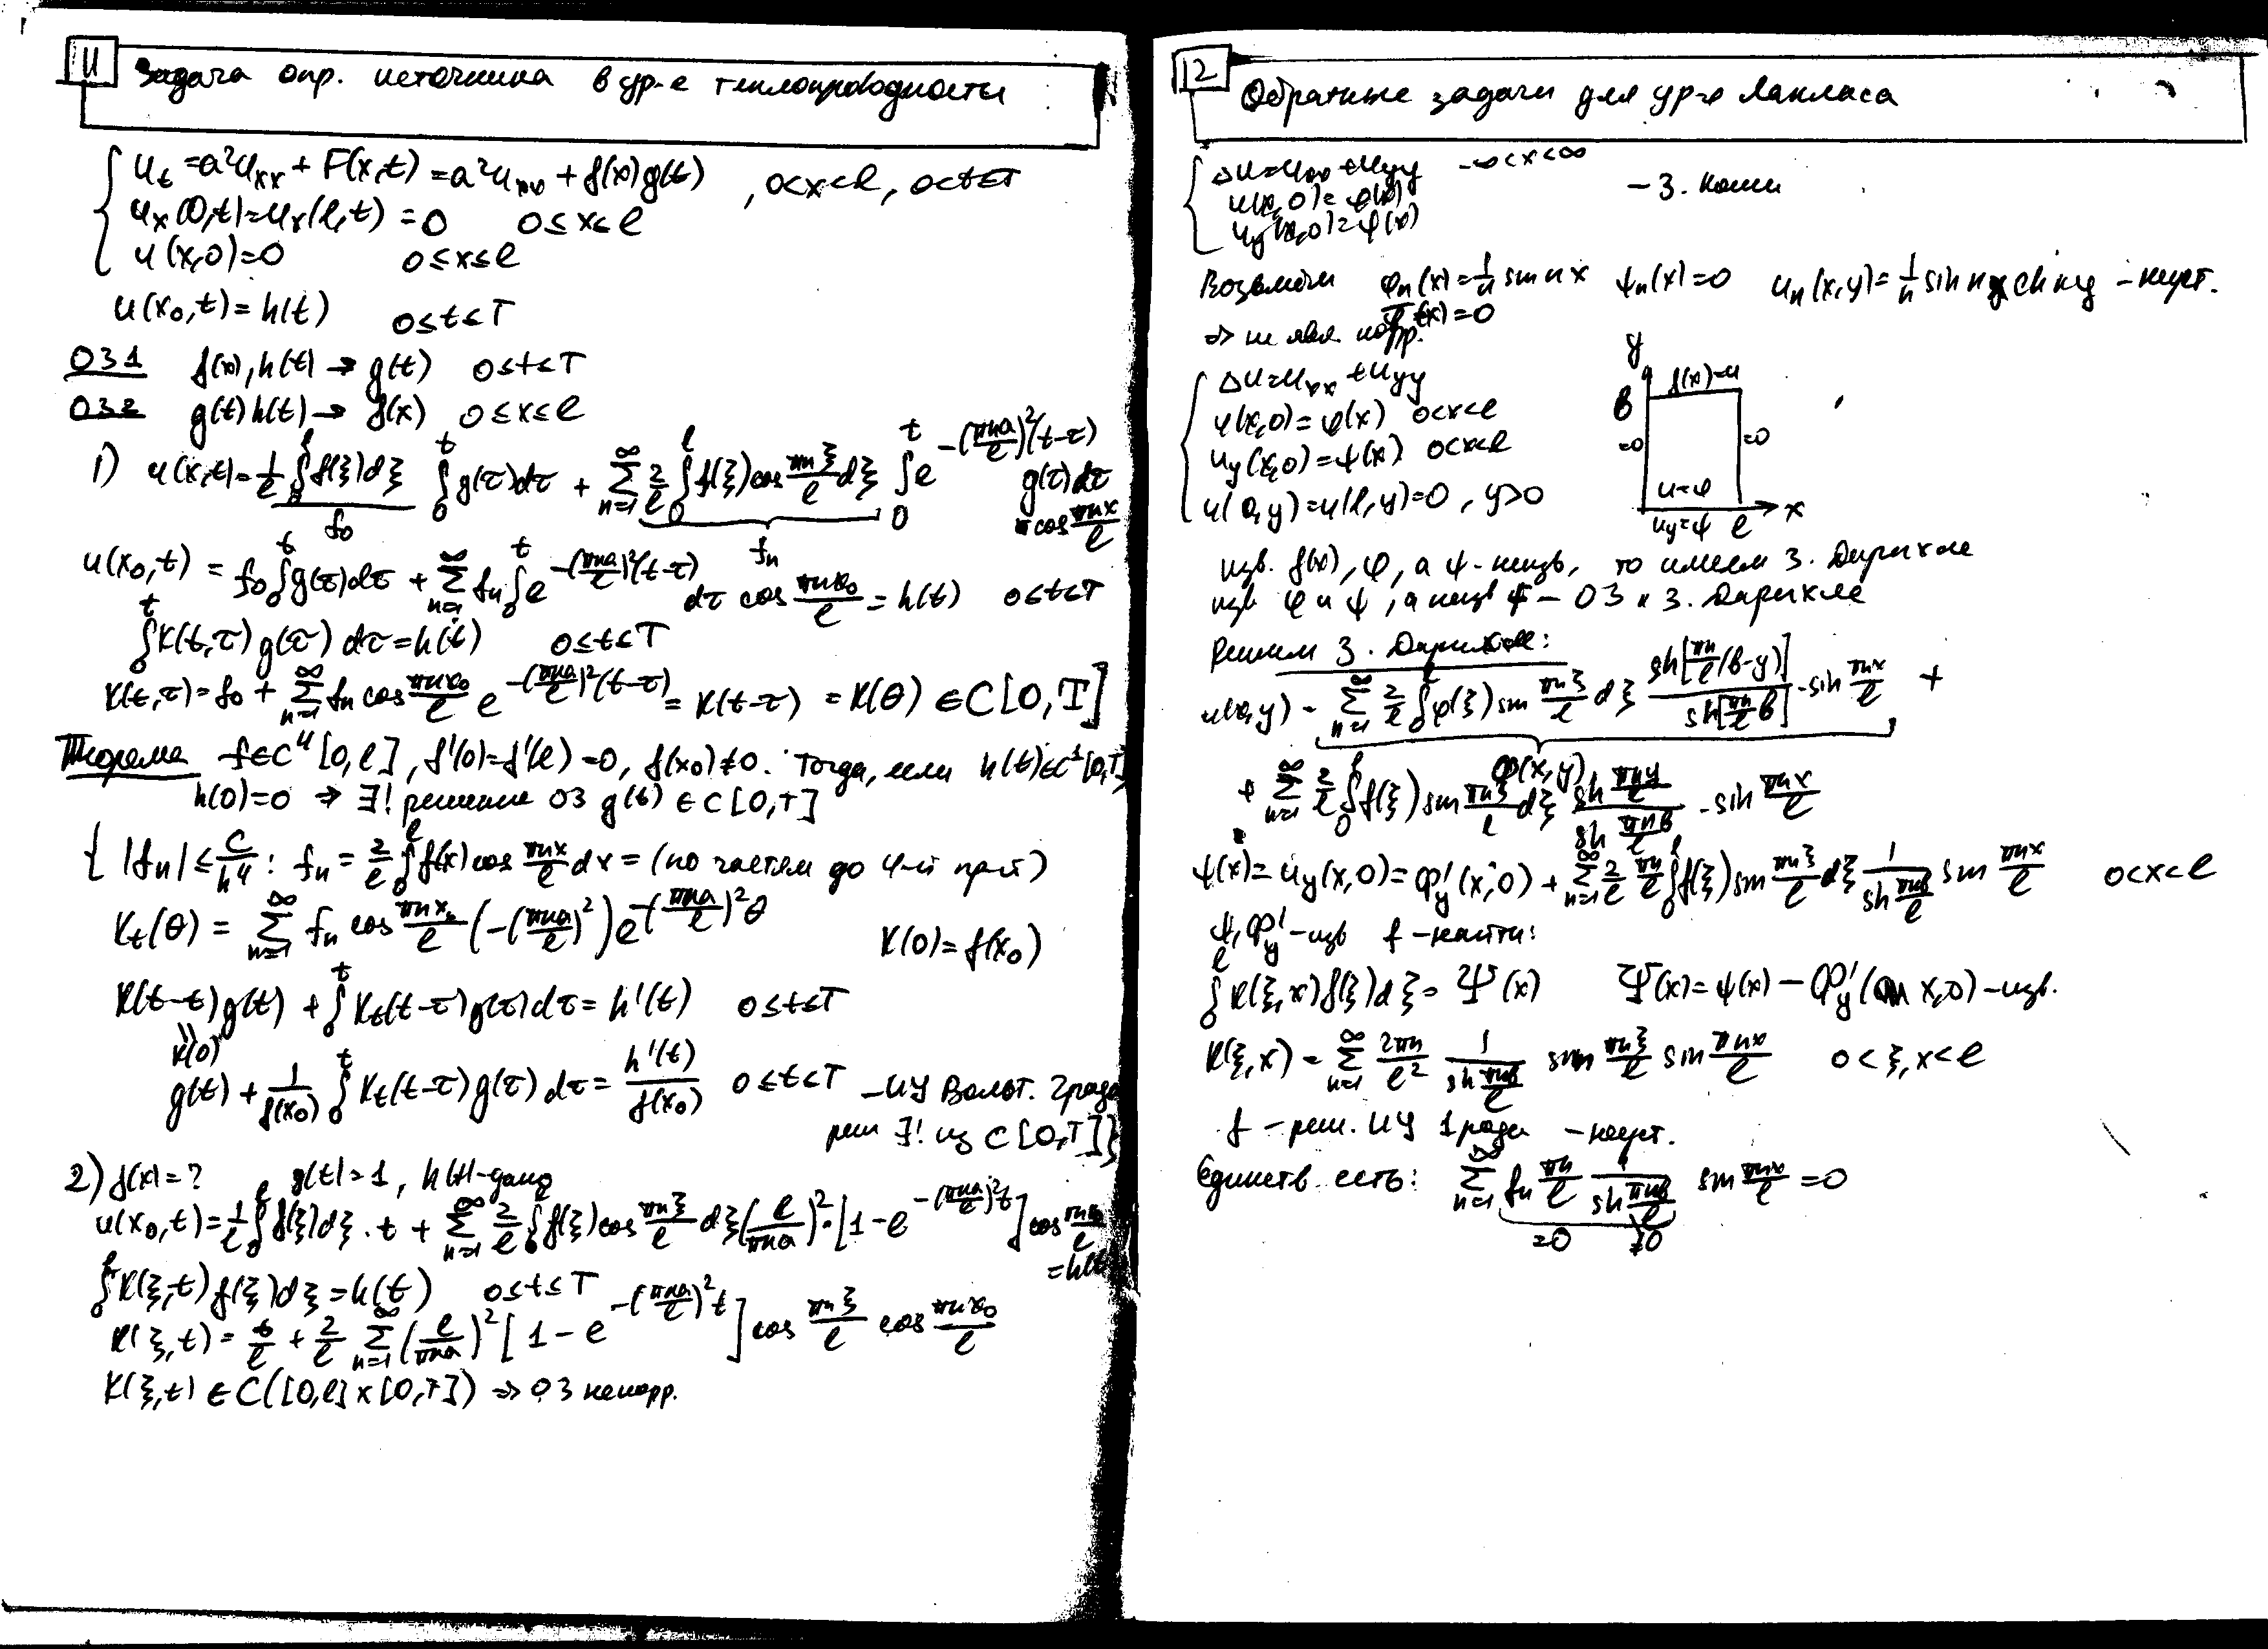 11 Задача опр. источника в ур-е теплопроводности
u_t = a²u_xx + F(x,t) = a²u_xx + f(x)g(t), 0<x<l, 0<t≤T
u_x(0,t) = u_x(l,t) = 0 0≤x≤l
u(x,0)=0 0≤x≤l
u(x₀,t) = h(t) 0≤t≤T
ОЗ1 f(x), h(t) → g(t) 0≤t≤T
ОЗ2 g(t) h(t) → f(x) 0≤x≤l
1) u(x,t) = 1/l ∫₀^l f(ξ)dξ ∫₀^t g(τ)dτ + Σ_{n=1}^∞ 2/l ∫₀^l f(ξ) cos πnξ/l dξ ∫₀^t e^{-(πna/l)²(t-τ)} g(τ)dτ · cos πnx/l
f₀ f_n
u(x₀,t) = f₀ ∫₀^t g(τ)dτ + Σ_{n=1}^∞ f_n ∫₀^t e^{-(πna/l)²(t-τ)} dτ cos πnx₀/l = h(t) 0≤t≤T
∫₀^t K(t,τ) g(τ) dτ = h(t) 0≤t≤T
K(t,τ) = f₀ + Σ_{n=1}^∞ f_n cos πnx₀/l e^{-(πna/l)²(t-τ)} = K(t-τ) = K(θ) ∈ C[0,T]
Теорема f∈C⁴[0,l], f'(0)=f'(l)=0, f(x₀)≠0. Тогда, если h(t)∈C¹[0,T]
h(0)=0 ⇒ ∃! решение ОЗ g(t) ∈ C[0,T]
{ |f_n| ≤ C/n⁴ : f_n = 2/l ∫₀^l f(x) cos πnx/l dx = (по частям до 4-й произв)
K_t(θ) = Σ_{n=1}^∞ f_n cos πnx₀/l (-(πna/l)²) e^{-(πna/l)²θ} K(0) = f(x₀)
K(t-t) g(t) + ∫₀^t K_t(t-τ) g(τ) dτ = h'(t) 0≤t≤T
K(0)
g(t) + 1/f(x₀) ∫₀^t K_t(t-τ) g(τ) dτ = h'(t)/f(x₀) 0≤t≤T – ИУ Вольт. 2 рода
реш ∃! из C[0,T] }
2) f(x) = ? g(t) = 1, h(t) - дано
u(x₀,t) = 1/l ∫₀^l f(ξ)dξ · t + Σ_{n=1}^∞ 2/l ∫₀^l f(ξ) cos πnξ/l dξ (l/πna)² · [1 - e^{-(πna/l)²t}] cos πnx₀/l = h(t)
∫₀^l K(ξ,t) f(ξ) dξ = h(t) 0≤t≤T
K(ξ,t) = t/l + 2/l Σ_{n=1}^∞ (l/πna)² [1 - e^{-(πna/l)²t}] cos πnξ/l cos πnx₀/l
K(ξ,t) ∈ C([0,l]×[0,T]) ⇒ ОЗ некорр.
12 Обратные задачи для ур-я Лапласа
Δu = u_xx + u_yy -∞<x<∞
u(x,0) = φ(x) – З. Коши
u_y(x,0) = ψ(x)
Возьмём φ_n(x) = 1/n sin nx ψ_n(x) = 0 u_n(x,y) = 1/n sin nx ch ny – неуст.
φ(x) = 0
⇒ не явл. корр.
Δu = u_xx + u_yy
u(x,0) = φ(x) 0<x<l
u_y(x,0) = ψ(x) 0<x<l
u(0,y) = u(l,y) = 0, y>0
y
b
f(x)=u
=0
=0
u=φ
u_y=ψ l x
изв. f(x), φ, а ψ - неизв, то имеем З. Дирихле
изв φ и ψ, а неизв f – ОЗ к З. Дирихле
Решим З. Дирихле:
u(x,y) = Σ_{n=1}^∞ 2/l ∫₀^l φ(ξ) sin πnξ/l dξ sh[πn/l (b-y)] / sh[πn/l b] · sin πnx/l +
Φ(x,y)
+ Σ_{n=1}^∞ 2/l ∫₀^l f(ξ) sin πnξ/l dξ sh πny/l / sh πnb/l · sin πnx/l
ψ(x) = u_y(x,0) = Φ'_y(x,0) + Σ_{n=1}^∞ 2/l πn/l ∫₀^l f(ξ) sin πnξ/l dξ 1/(sh πnb/l) sin πnx/l 0<x<l
ψ, Φ'_y – изв f – найти:
∫₀^l K(ξ,x) f(ξ) dξ = Ψ(x) Ψ(x) = ψ(x) – Φ'_y(x,0) – изв.
K(ξ,x) = Σ_{n=1}^∞ 2πn/l² 1/(sh πnb/l) sin πnξ/l sin πnx/l 0<ξ,x<l
f – реш. ИУ 1 рода – неуст.
Единств. есть: Σ_{n=1}^∞ f_n πn/l 1/(sh πnb/l) sin πnx/l = 0
=0 ≠0